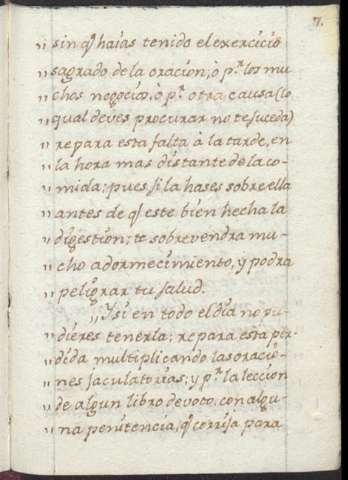 7.
,, sin q̃ haias tenido el exercicio
,, sagrado de la oracion, ò p.r los mu
,, chos negocios, ò p.r otra causa (lo
,, qual deves procurar no te suceda)
,, repara esta falta à la tarde, en
,, la hora mas distante de la co-
,, mida; pues si la hases sobre ella
,, antes de q̃ este bien hecha la
,, digestion; te sobrevendra mu-
,, cho adormecimiento, y podra
,, peligrar tu salud.
,, ,, Y si en todo el dia no pu-
,, dieres tenerla; repara esta per-
,, dida multiplicando las oracio-
,, nes jaculatorias; y p.r la leccion
,, de algun libro devoto, con algu-
,, na penitencia, q̃ corrija para